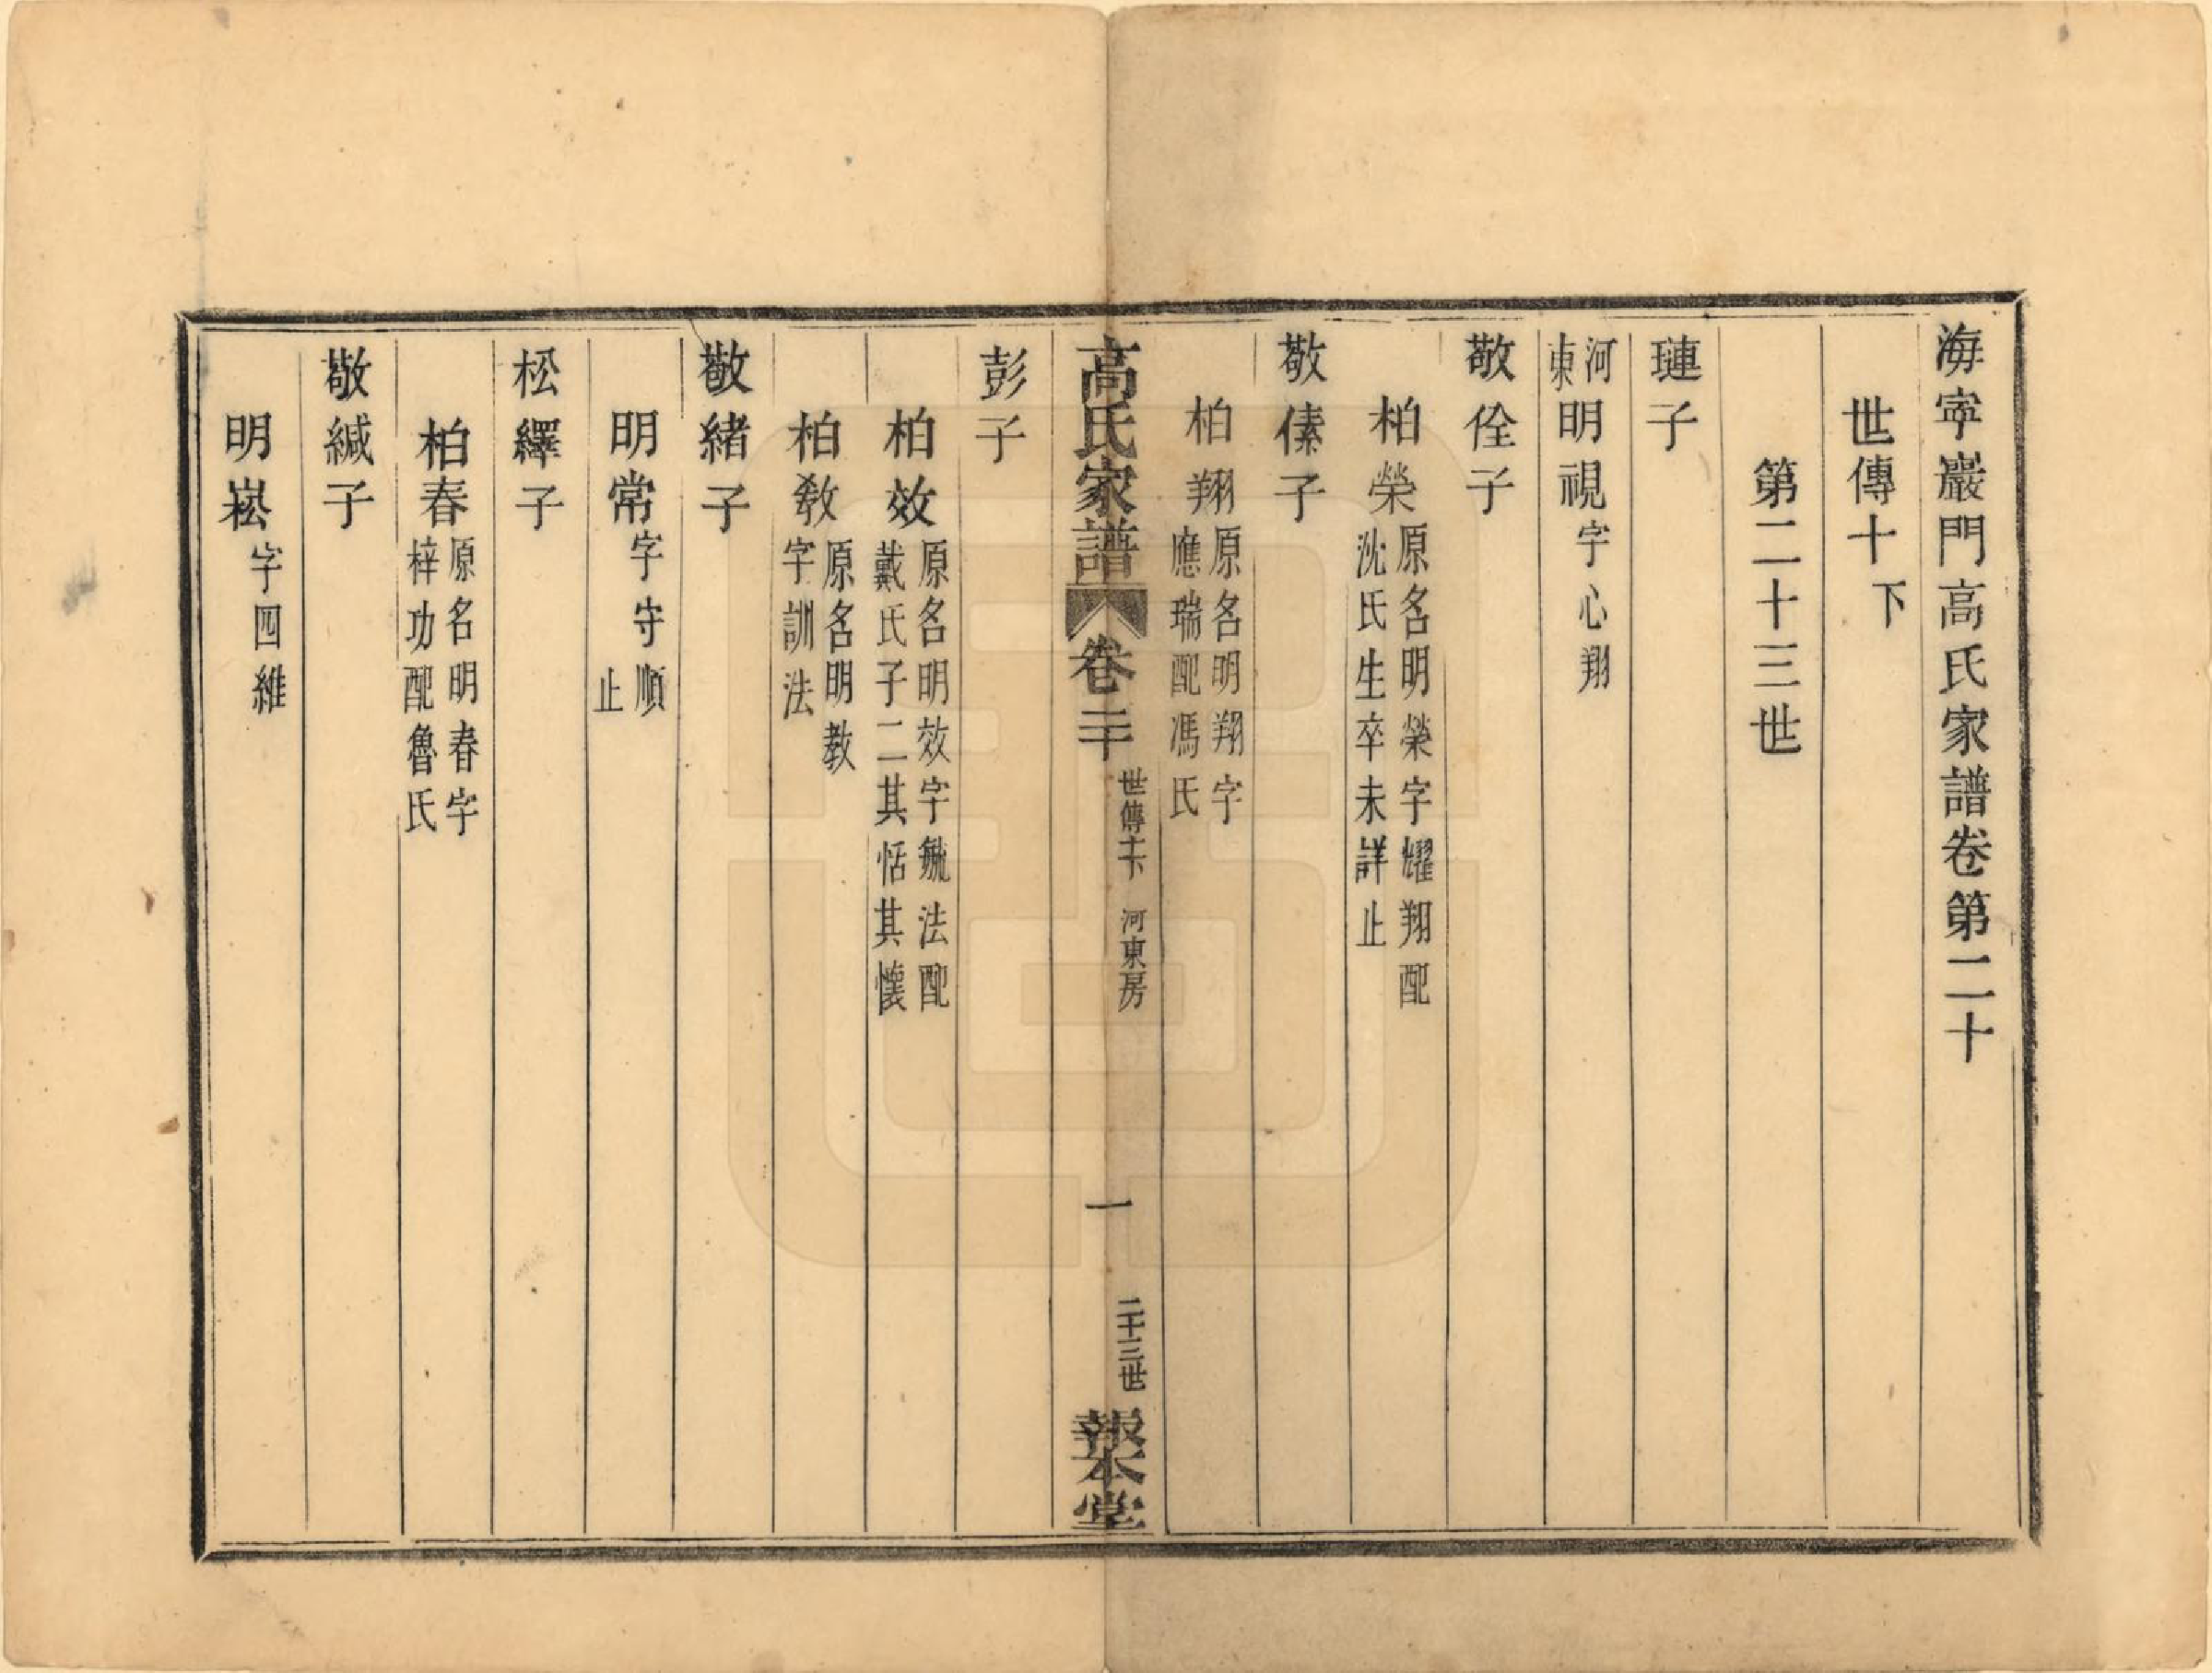 海寧巖門高氏家譜卷第二十
世傳十下
第二十三世
璉子
河東明視字心翔
敬佺子
柏榮原名明榮字耀翔配
沈氏生卒未詳止
敬傃子
柏翔原名明翔字
應瑞配馮氏
高氏家譜 卷二十 世傳十下 河東房 一 二十三世 報本堂
彭子
柏效原名明效字毓法配
戴氏子二其恬其懷
柏敎原名明教
字訓法
敬緒子
明常字守順
止
松繹子
柏春原名明春字
梓功配魯氏
敬緘子
明崧字四維